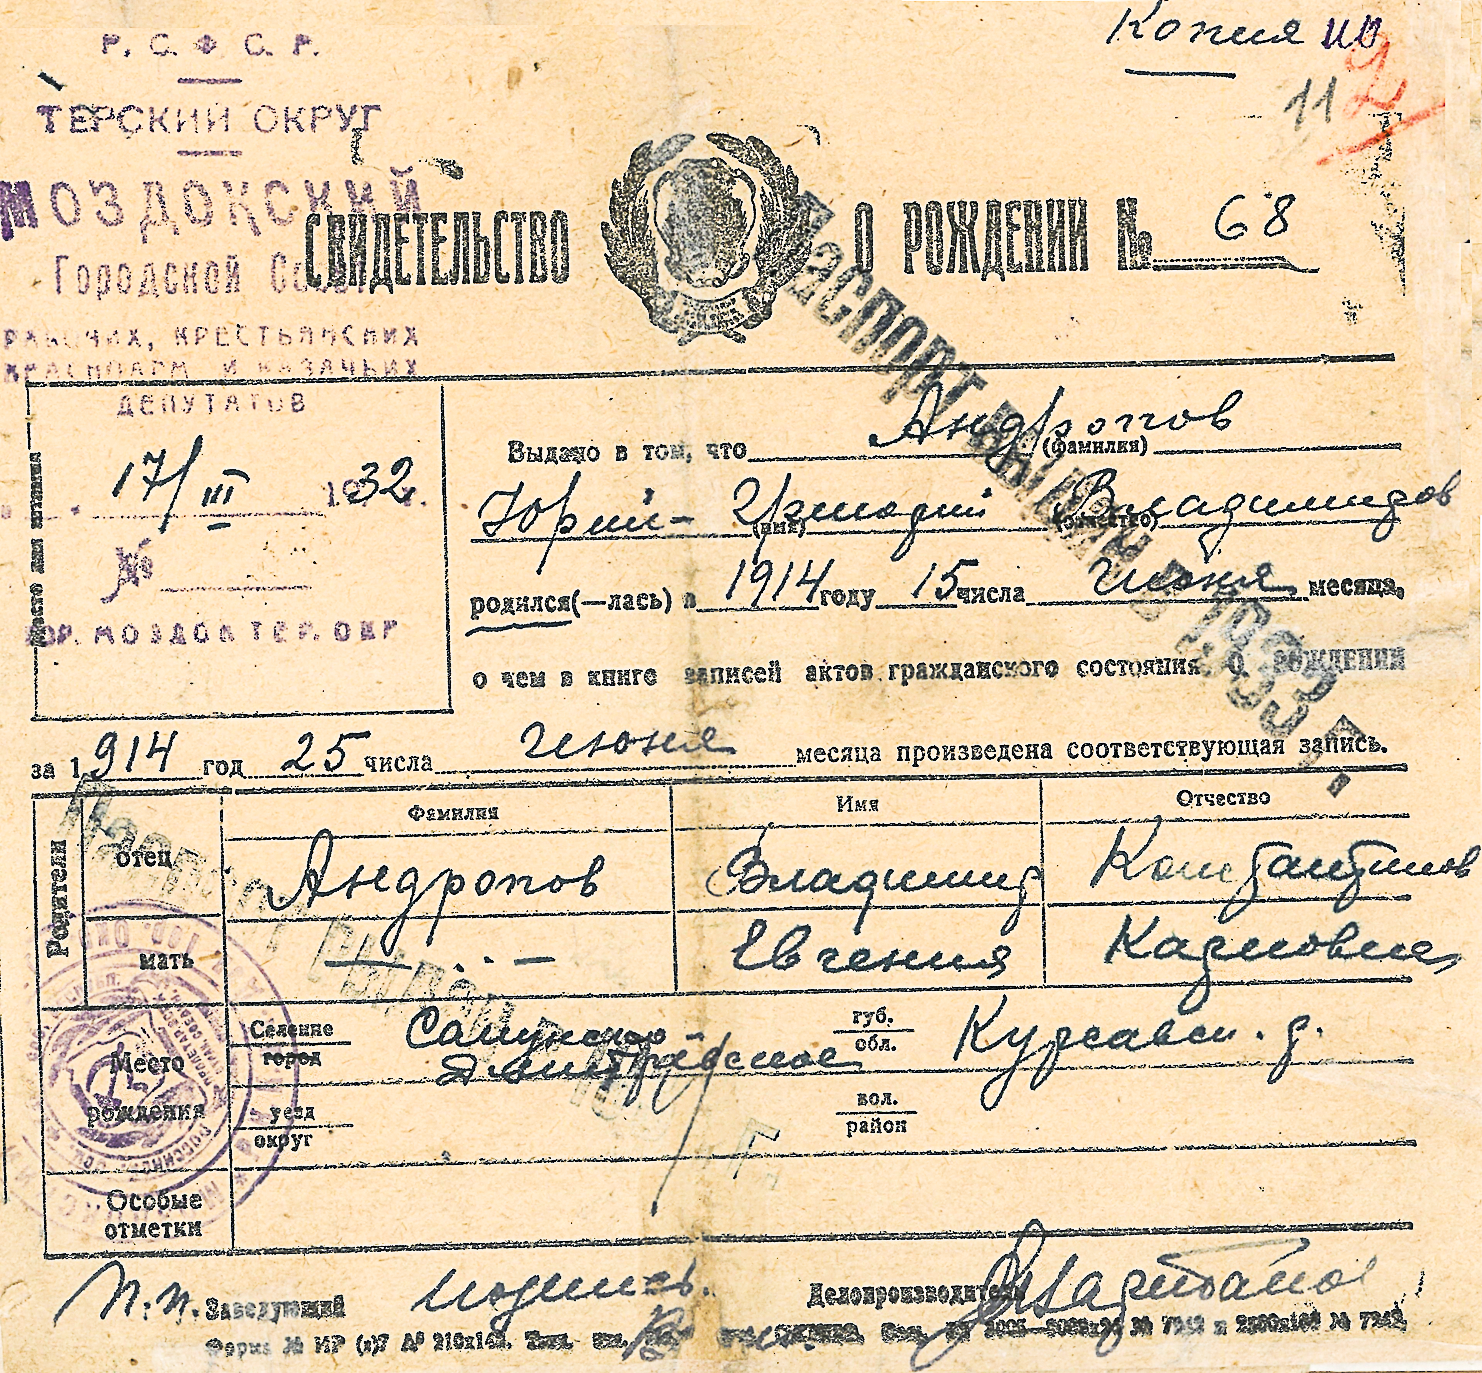 Копия
11
Р. С. Ф. С. Р.
ТЕРСКИЙ ОКРУГ
МОЗДОКСКИЙ
Городской
РАБОЧИХ, КРЕСТЬЯНСКИХ
КРАСНОАРМ И КАЗАЧЬИХ
ДЕПУТАТОВ
17/III 1932 г.
№
ГОР. МОЗДОК ТЕР. ОКР
СВИДЕТЕЛЬСТВО О РОЖДЕНИИ № 68
Паспорт выдан в 1933 г.
Место для штампа
Выдано в том, что Андропов
(фамилия)
Юрий - Григорий Владимиров
(имя) (отчество)
родился(—лась) в 1914 году 15 числа июня месяца,
о чем в книге записей актов гражданского состояния о рождении
за 1914 год 25 числа июня месяца произведена соответствующая запись.
Родители
Фамилия Имя Отчество
отец Андропов Владимир Константинов
мать — . . — Евгения Карловна
Место рождения
Селение
город
губ.
обл.
Курсавск. р.
уезд
округ
вол.
район
Особые
отметки
п.п. Заведующий подпись. Делопроизводитель